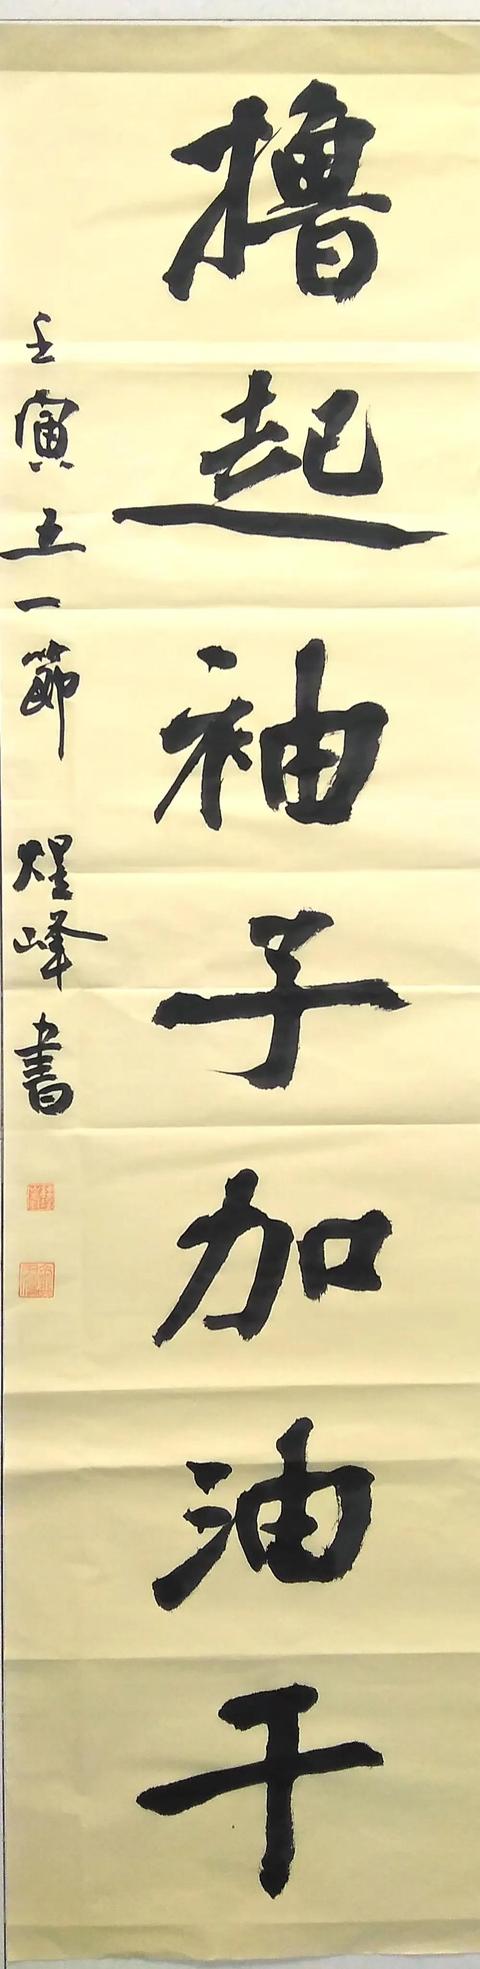 撸起袖子加油干
壬寅五一節 煜峰書